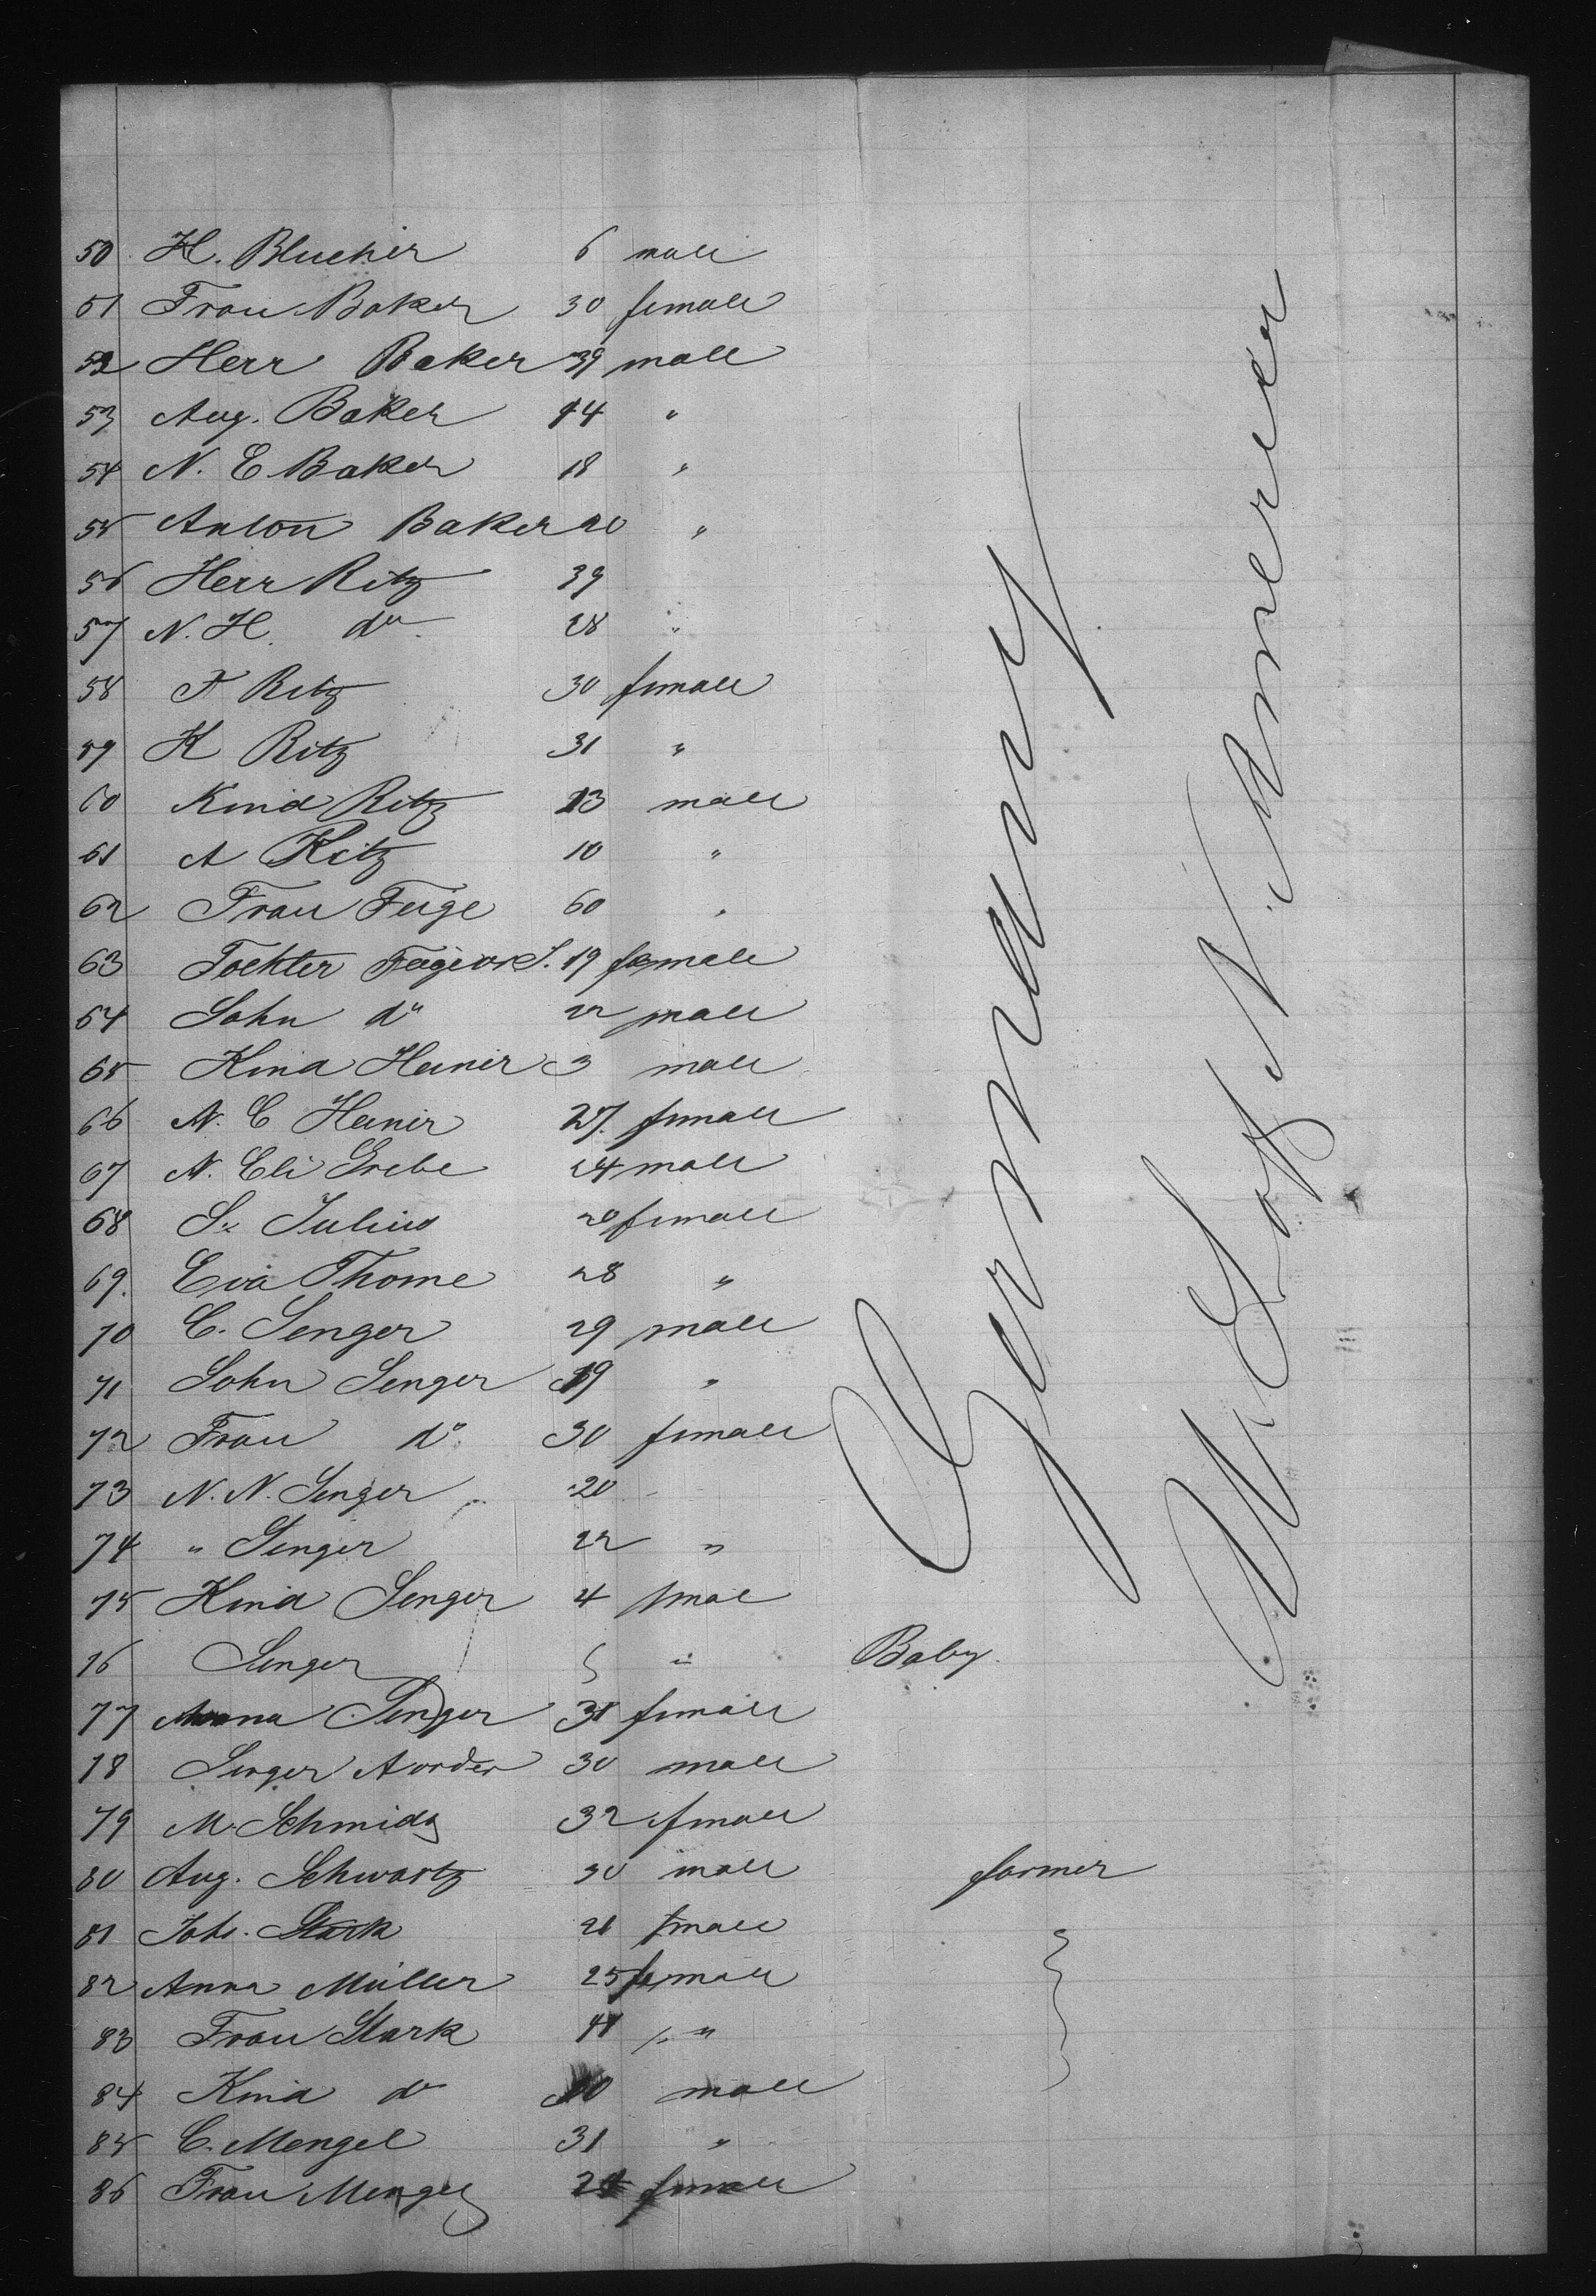 50 H. Blucher 6 male
51 Frau Baker 30 female
52 Herr Baker 39 male
53 Aug. Baker 14 "
54 N. E Baker 18 "
55 Anton Baker 20 "
56 Herr Ritz 39
57 N. H. do 28 "
58 F Ritz 30 female
59 K Ritz 31 "
60 Kind Ritz 13 male
61 A Ritz 10 "
62 Frau Feige 60 "
63 Tochter 19 female
64 Sohn do 22 male
65 Kind Heinir 3 male
66 N. C Heinir 27. female
67 N. Eli Grebe 24 male
68 S. Julius 20 female
69. Eva Thome 28 "
70 C. Senger 29 male
71 Sohn Senger 19 "
72 Frau do. 30 female
73 N. N. Senger 20
74 " Senger 22 "
75 Kind Senger 4
76 Senger " Baby.
77 Senger 31 female
78 Senger 30 male
79 M. Schmidz 32 female
80 Aug. Schwartz 30 male farmer
81 Joh. Stark 21
82 Anna Müller 25 female
83 Frau Stark 41 "
84 Kind do 10 male
85 C. Mengel 31 "
86 Frau Mengel female
Germany
U. S. of N. America